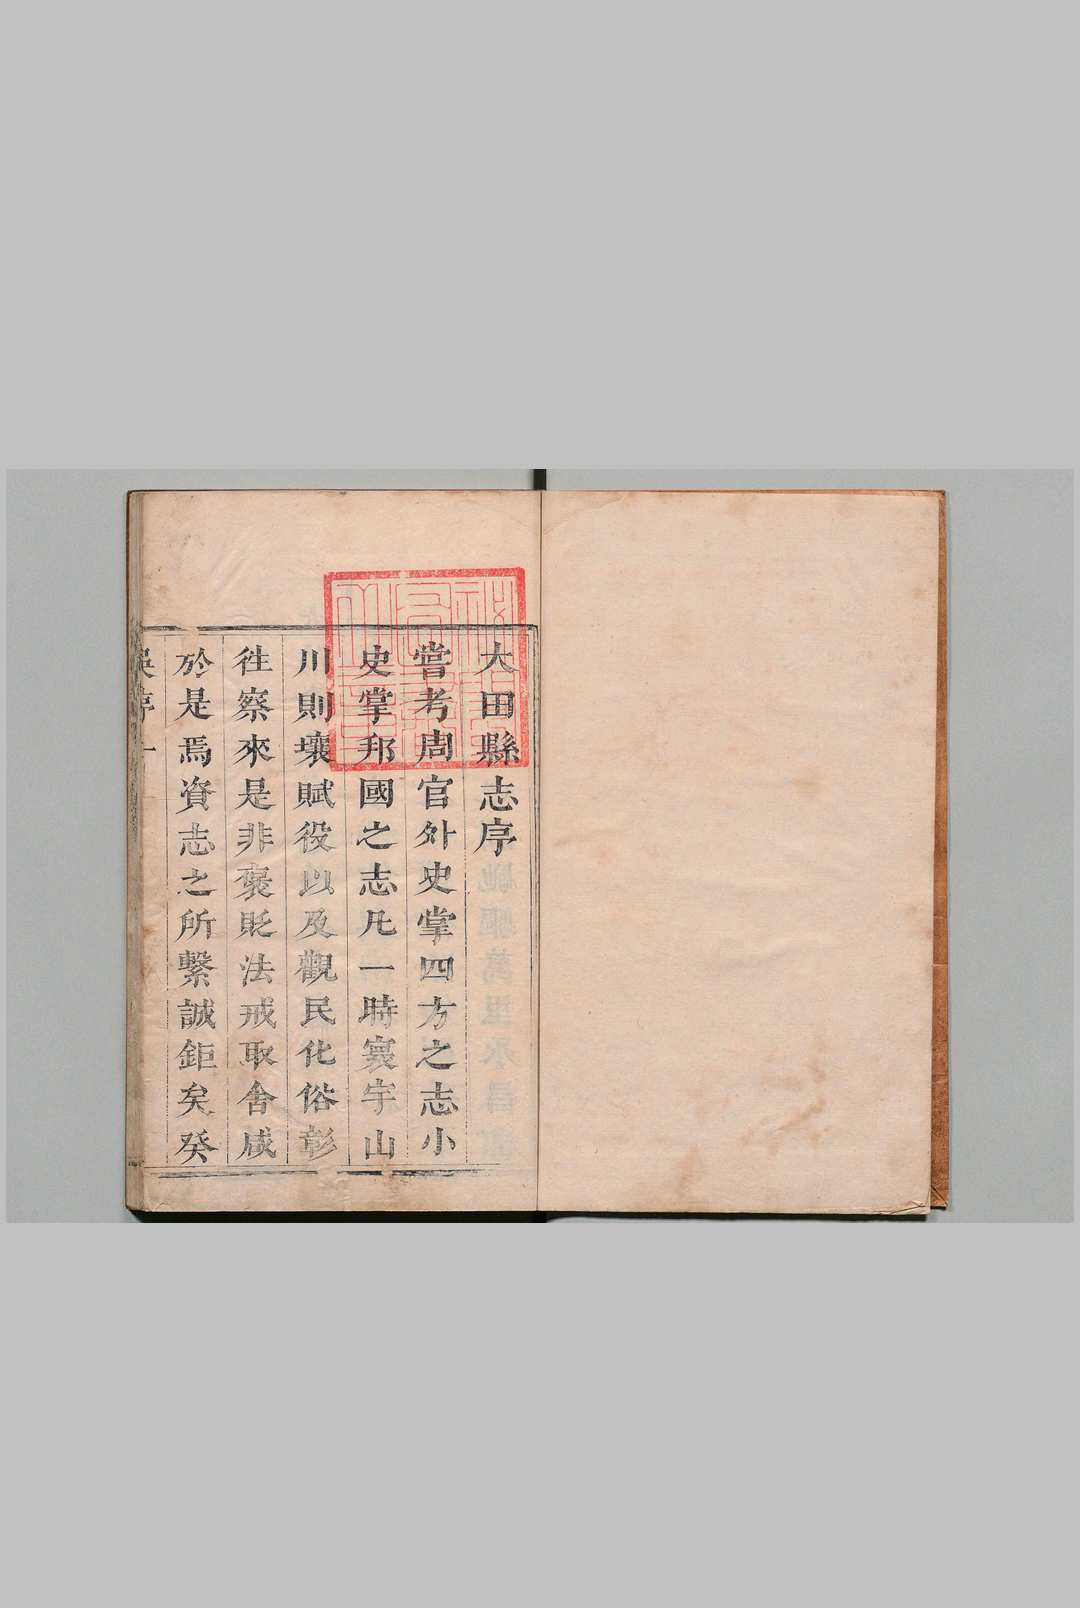 大田縣志序
嘗考周官外史掌四方之志小
史掌邦國之志凡一時寰宇山
川則壤賦役以及觀民化俗彰
徃察來是非褒貶法戒取舍咸
於是焉資志之所繫誠鉅矣癸
吳序 一